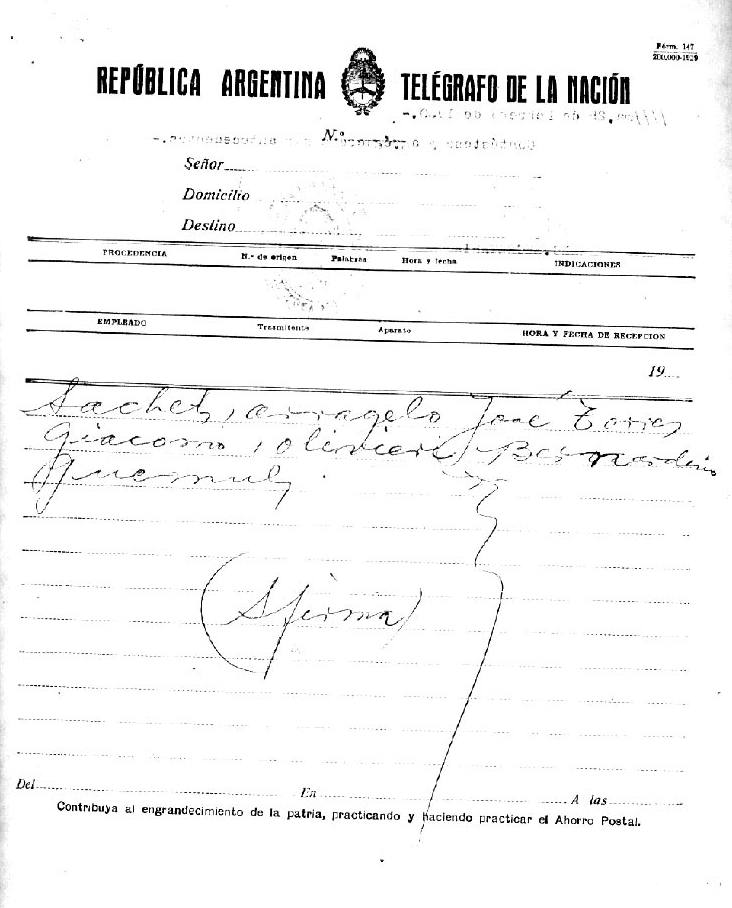 Fórm. 147
200.000-1929
REPÚBLICA ARGENTINA TELÉGRAFO DE LA NACIÓN
N.º
Señor
Domicilio
Destino
PROCEDENCIA N.º de origen Palabras Hora y fecha INDICACIONES
EMPLEADO Trasmitente Aparato HORA Y FECHA DE RECEPCION
19
José
Giacomo, Olivieri, Bernardino
(S firma)
Del En A las
Contribuya al engrandecimiento de la patria, practicando y haciendo practicar el Ahorro Postal.